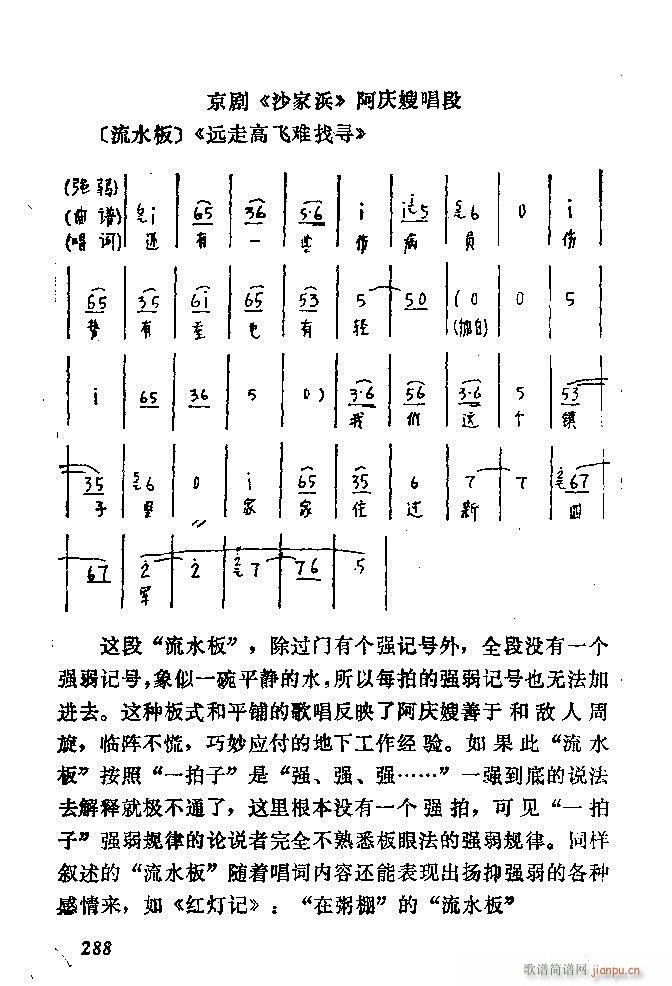 京剧《沙家浜》阿庆嫂唱段
〔流水板〕《远走高飞难找寻》
(强弱)
(曲谱) i 65 36 5·6 i i5 6 0 i
(唱词) 还 有 一 些 伤 病 员 伤
65 35 6i 65 53 5 50 (0 0 5
势 有 重 也 有 轻 (加白)
i 65 36 5 0) 3·6 56 3·6 5 53
我 们 这 个 镇
35 6 0 i 65 35 6 7 7 67
子 里 家 家 住 过 新 四
67 2 2 7 76 5
军
这段“流水板”，除过门有个强记号外，全段没有一个
强弱记号，象似一碗平静的水，所以每拍的强弱记号也无法加
进去。这种板式和平铺的歌唱反映了阿庆嫂善于和敌人周
旋，临阵不慌，巧妙应付的地下工作经验。如果此“流水
板”按照“一拍子”是“强、强、强……”一强到底的说法
去解释就极不通了，这里根本没有一个强拍，可见“一拍
子”强弱规律的论说者完全不熟悉板眼法的强弱规律。同样
叙述的“流水板”随着唱词内容还能表现出扬抑强弱的各种
感情来，如《红灯记》：“在粥棚”的“流水板”
288
歌谱简谱网
jianpu.cn